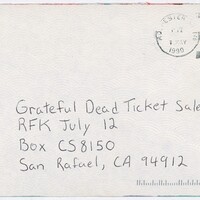 1990
Grateful Dead Ticket Sale
RFK July 12
Box CS8150
San Rafael, CA 94912